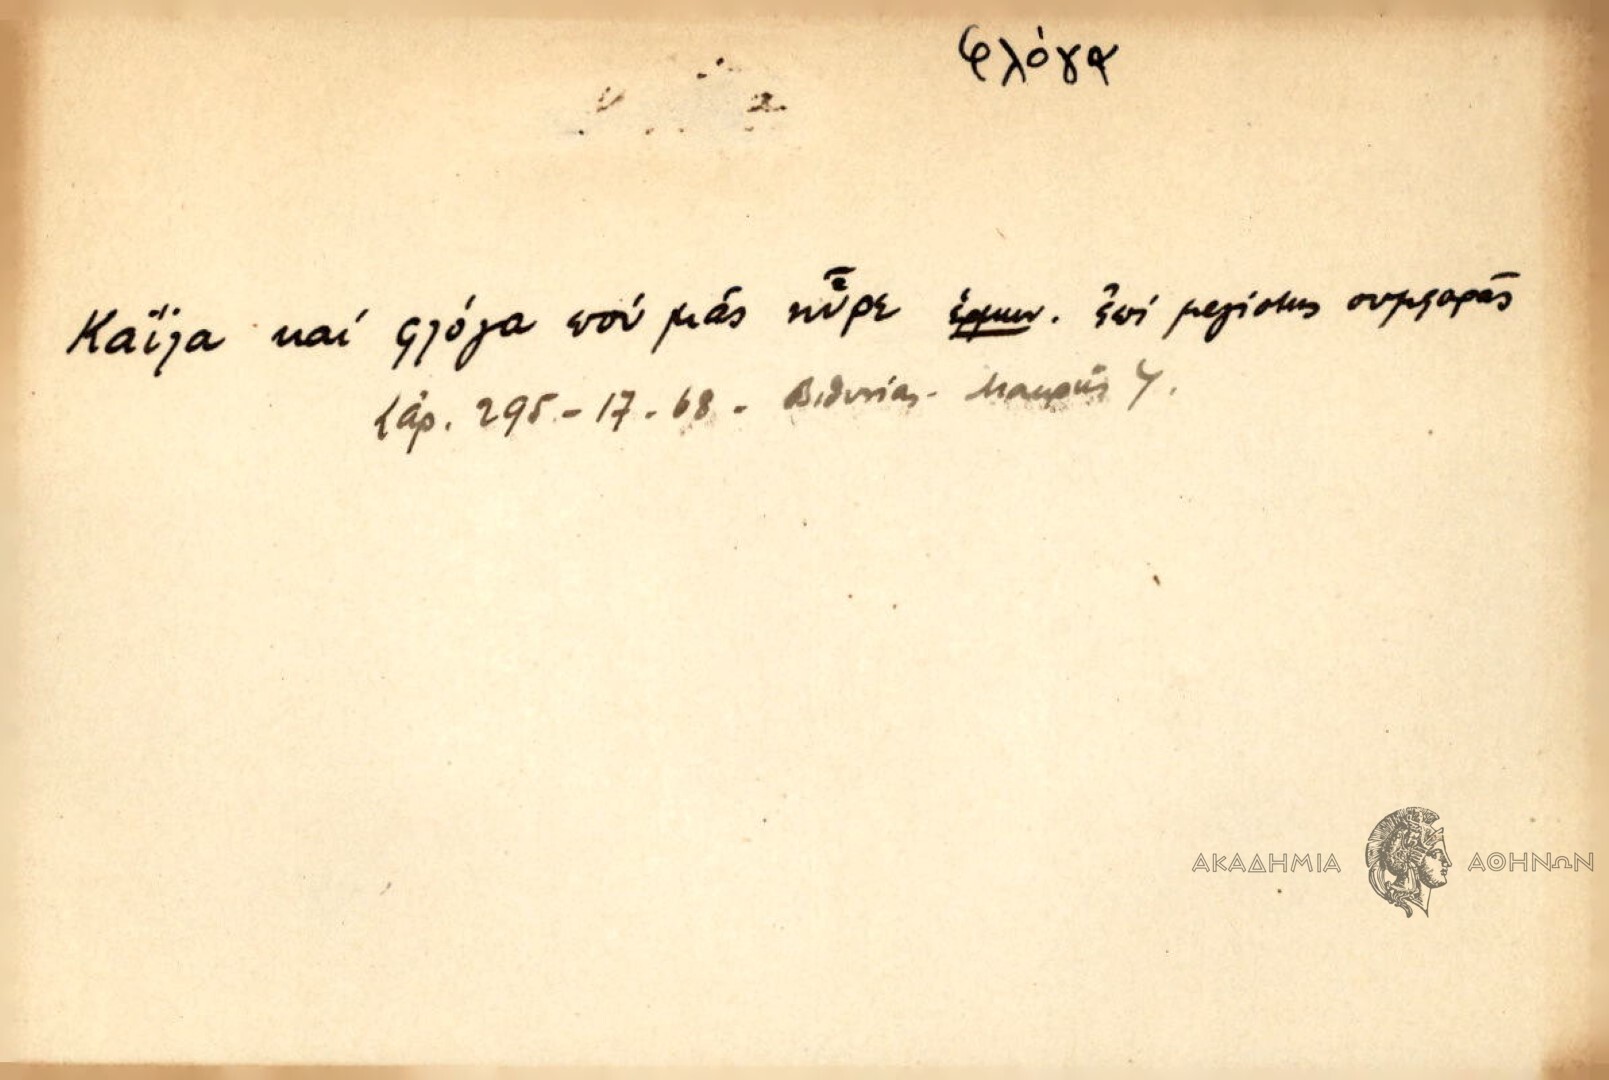 φλόγα
Καΐλα καί φλόγα πού μᾶς ηὗρε ἑρμην. ἐπί μεγίστης συμφορᾶς
Λάρ. 295 - 17 - 68 - Βιθυνίας -
ΑΚΑΔΗΜΙΑ ΑΘΗΝΩΝ